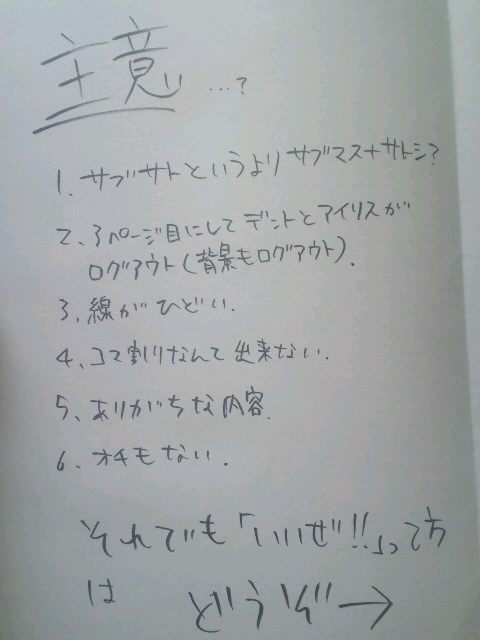 主意 …?
1. サブサトというよりサブマス+サトシ?
2、3ページ目にしてデントとアイリスが
ログアウト(背景もログアウト).
3、線がひどい.
4、コマ割りなんて出来ない.
5、ありがちな内容.
6、オチもない.
それでも「いいぜ!!」って方
は どうぞ→